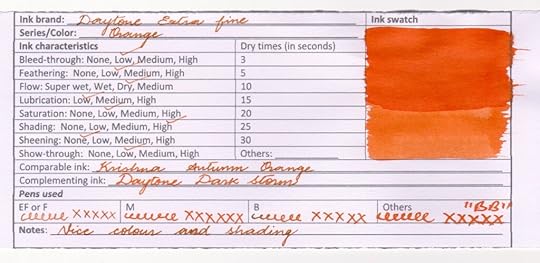 Ink brand: Daytone Extra fine Ink swatch
Series/Color: Orange
Ink characteristics Dry times (in seconds)
Bleed-through: None, Low, Medium, High 3
Feathering: None, Low, Medium, High 5
Flow: Super wet, Wet, Dry, Medium 10
Lubrication: Low, Medium, High 15
Saturation: None, Low, Medium, High 20
Shading: None, Low, Medium, High 25
Sheening: None, Low, Medium, High 30
Show-through: None, Low, Medium, High Others:
Comparable ink: Krishna Autumn Orange
Complementing ink: Daytone Dark Storm
Pens used
EF or F M B Others "BB"
xxxxx xxxxxx xxxxx xxxxx
Notes: Nice colour and shading